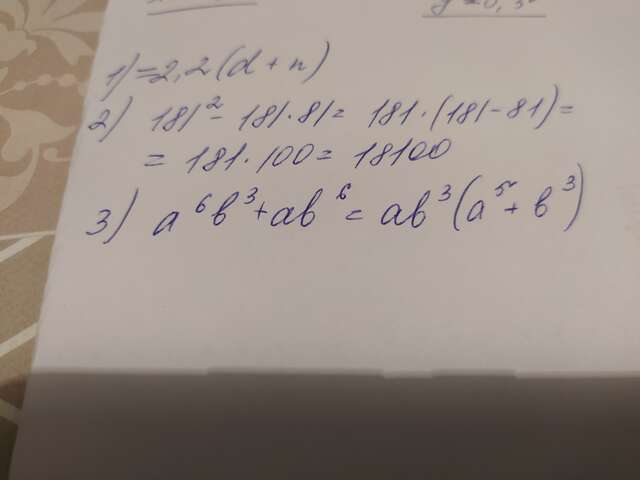 1) = 2,2(d + n)
2) 181² - 181 · 81 = 181 · (181 - 81) =
= 181 · 100 = 18100
3) a⁶b³ + ab⁶ = ab³(a⁵ + b³)